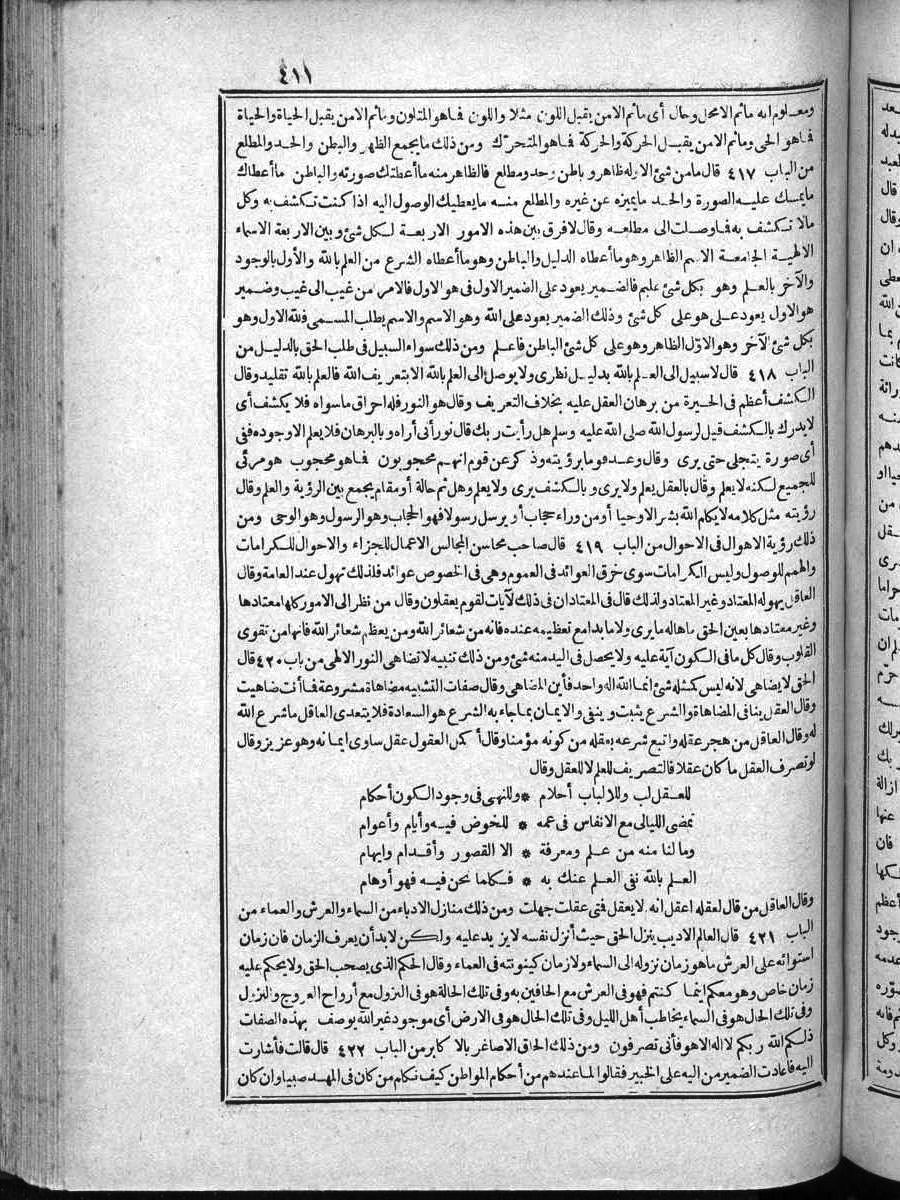 ٤١١
ومعلوم انه ماثم الامحل وحال أى ماثم الامن يقبل اللون مثلا واللون فما هو المتلون وماثم الامن يقبل الحياة والحياة
فما هو الحى وماثم الامن يقبل الحركة والحركة فما هو المتحرك ومن ذلك ما يجمع الظهر والبطن والحد والمطلع
من الباب ٤١٧ قال مامن شئ الاوله ظاهر وباطن وحد ومطلع فالظاهر منه ما أعطتك صورته والباطن ما أعطاك
ما يمسك عليه الصورة والحد ما يميزه عن غيره والمطلع منه ما يعطيك الوصول اليه اذا كنت تكشف به وكل
مالا تكشف به فما وصلت الى مطلعه وقال لا فرق بين هذه الامور الاربعة لكل شئ وبين الاربعة الاسماء
الالهية الجامعة الاسم الظاهر وهو ما أعطاه الدليل والباطن وهو ما أعطاه الشرع من العلم بالله والأول بالوجود
والآخر بالعلم وهو بكل شئ عليم فالضمير يعود على الضمير الاول فى هو الاول فالامر من غيب الى غيب وضمير
هو الاول يعود على هو على كل شئ وذلك الضمير يعود على الله وهو الاسم والاسم يطلب المسمى فلله الاول وهو
بكل شئ الآخر وهو الاول الظاهر وهو على كل شئ الباطن فاعلم ومن ذلك سواء السبيل فى طلب الحق بالدليل من
الباب ٤١٨ قال لاسبيل الى العلم بالله بدليل نظرى ولا يوصل الى العلم بالله الابتعريف الله فالعلم بالله تقليد وقال
الكشف أعظم فى الحيرة من برهان العقل عليه بخلاف التعريف وقال هو النور فله احراق ماسواه فلا يكشف أى
لا يدرك بالكشف قيل لرسول الله صلى الله عليه وسلم هل رأيت ربك قال نور أنى أراه وبالبرهان فلا يعلم الاوجوده ففى
أى صورة يتجلى حتى يرى وقال وعد قوما برؤيته وذكر عن قوم انهم محجوبون فما هو محجوب هو مرئى
للجميع لكنه لا يعلم وقال بالعقل يعلم ولا يرى وبالكشف يرى ولا يعلم وهل ثم حالة أو مقام يجمع بين الرؤية والعلم وقال
رؤيته مثل كلامه لا يكلم الله بشر الاوحيا أو من وراء حجاب أو يرسل رسولا فهو الحجاب وهو الرسول وهو الوحى ومن
ذلك رؤية الاهوال فى الاحوال من الباب ٤١٩ قال صاحب محاسن المجالس الاعمال للجزاء والاحوال للكرامات
والهمم للوصول وليس الكرامات سوى خرق العوائد فى العموم وهى فى الخصوص عوائد فلذلك تهول عند العامة وقال
العاقل يهوله المعتاد وغير المعتاد ولذلك قال فى المعتاد ان فى ذلك لآيات لقوم يعقلون وقال من نظر الى الامور كلها معتادها
وغير معتادها بعين الحق ما هاله ما يرى ولا ما بدا مع تعظيمه عنده فانه من شعائر الله ومن يعظم شعائر الله فانها من تقوى
القلوب وقال كل ما فى الكون آية عليه ولا يحصل فى اليد منه شئ ومن ذلك تنبيه لا تضاهى النور الالهى من باب ٤٢٠ قال
الحق لا يضاهى لانه ليس كمثله شئ انما الله اله واحد فأين المضاهى وقال صفات التشبيه مضاهاة مشروعة فما أنت ضاهيت
وقال العقل ينافى المضاهاة والشرع يثبت وينفى والايمان بما جاء به الشرع هو السعادة فلا يتعدى العاقل ما شرع الله
له وقال العاقل من هجر عقله واتبع شرعه بعقله من كونه مؤمنا وقال أكمل العقول عقل ساوى ايمانه وهو عزيز وقال
لو تصرف العقل ما كان عقلا فالتصريف للعلم لا للعقل وقال
للعقل لب وللالباب أحلام * وللنهى فى وجود الكون أحكام
تمضى الليالى مع الانفاس فى عمه * للخوض فيه وأيام وأعوام
وما لنا منه من علم ومعرفة * الا القصور وأقدام وايهام
العلم بالله نفى العلم عنك به * فكلما نحن فيه فهو أوهام
وقال العاقل من قال لعقله اعقل انه لا يعقل فتى عقلت جهلت ومن ذلك منازل الادباء من السماء والعرش والعماء من
الباب ٤٢١ قال العالم الاديب ينزل الحق حيث أنزل نفسه لا يزيد عليه ولكن لابد أن يعرف الزمان فان زمان
استوائه على العرش ماهو زمان نزوله الى السماء ولا زمان كينونته فى العماء وقال الحكم الذى يصحب الحق ولا يحكم عليه
زمان خاص وهو معكم اينما كنتم فهو فى العرش مع الحافين به وفى تلك الحالة هو فى النزول مع أرواح العروج والنزول
وفى تلك الحال هو فى السماء يخاطب أهل الليل وفى تلك الحال هو فى الارض أى موجود غير الله يوصف بهذه الصفات
ذلكم الله ربكم لا اله الا هو فأنى تصرفون ومن ذلك الحاق الاصاغر بالاكابر من الباب ٤٢٢ قال قالت فأشارت
اليه فاعادت الضمير من اليه على الخبير فقالوا لما عندهم من أحكام المواطن كيف نكلم من كان فى المهد صبيا وان كان